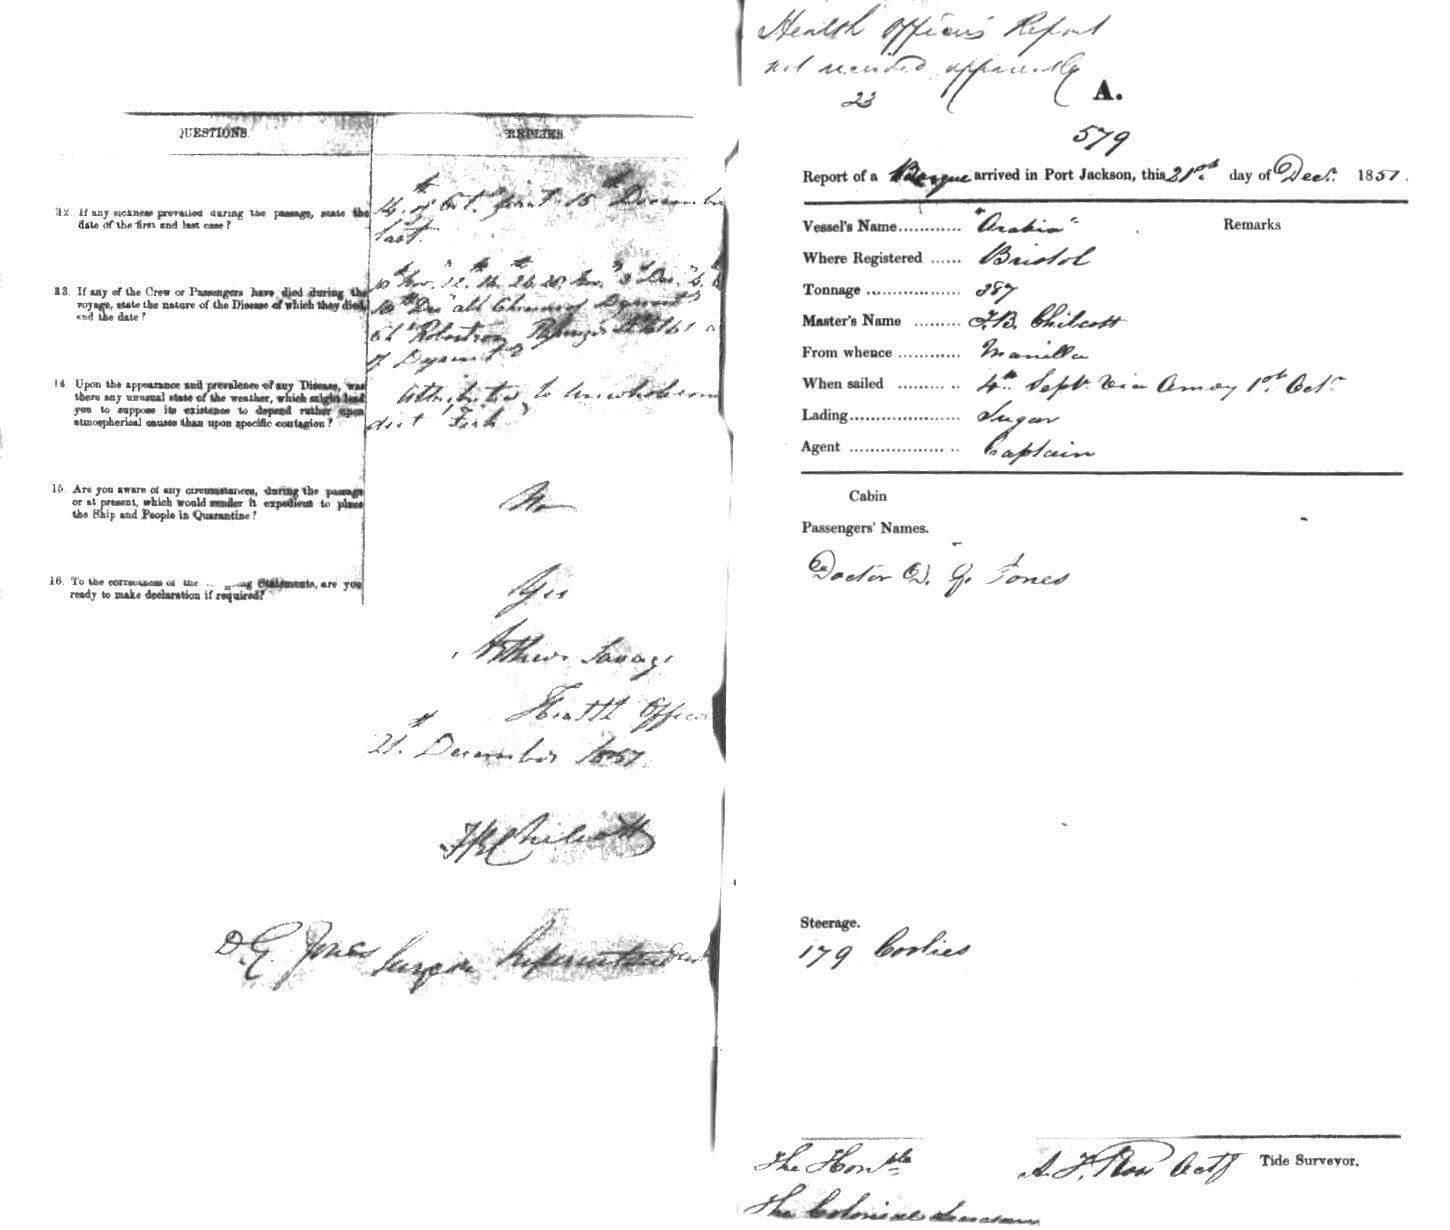 QUESTIONS.
REPLIES.
12. If any sickness prevailed during the passage, state the
date of the first and last case?
14th of Oct. first 15th December
last.
13. If any of the Crew or Passengers have died during the
voyage, state the nature of the Disease of which they died,
and the date?
10th Nov.
10th Dec. all Chinese of
Robertson
of
14. Upon the appearance and prevalence of any Disease, was
there any unusual state of the weather, which might lead
you to suppose its existence to depend rather upon
atmospherical causes than upon specific contagion?
to unwholesome
diet Fish
15. Are you aware of any circumstances, during the passage
or at present, which would render it expedient to place
the Ship and People in Quarantine?
No
16. To the correctness of the ...ing Statements, are you
ready to make declaration if required?
Yes
Arthur Savage
Health Officer
21st December 1851
F B Chilcott
D. G. Jones Surgeon Superintendent
Health Officer's Report
not received apparently
23
A.
579
Report of a Barque arrived in Port Jackson, this 21st day of Decr. 1851.
Vessel's Name............ "Arabia" Remarks
Where Registered ...... Bristol
Tonnage ................ 387
Master's Name ......... F.B. Chilcott
From whence ............ Manilla
When sailed .......... .. 4th Sept. via Amoy 1st Octr
Lading................... Sugar
Agent .................. .. Captain
Cabin
Passengers' Names.
Doctor D. G. Jones
Steerage.
179 Coolies
The Honble
A. F. Ross Actg Tide Surveyor.
The Colonial Secretary